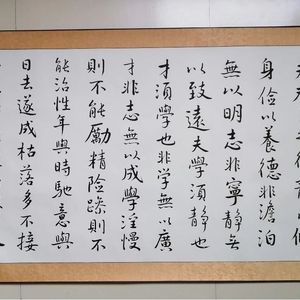 身儉以養德非澹泊
無以明志非寧靜無
以致遠夫學須靜也
才須學也非学無以廣
才非志無以成學淫慢
則不能勵精險躁則不
能治性年與時馳意與
日去遂成枯落多不接